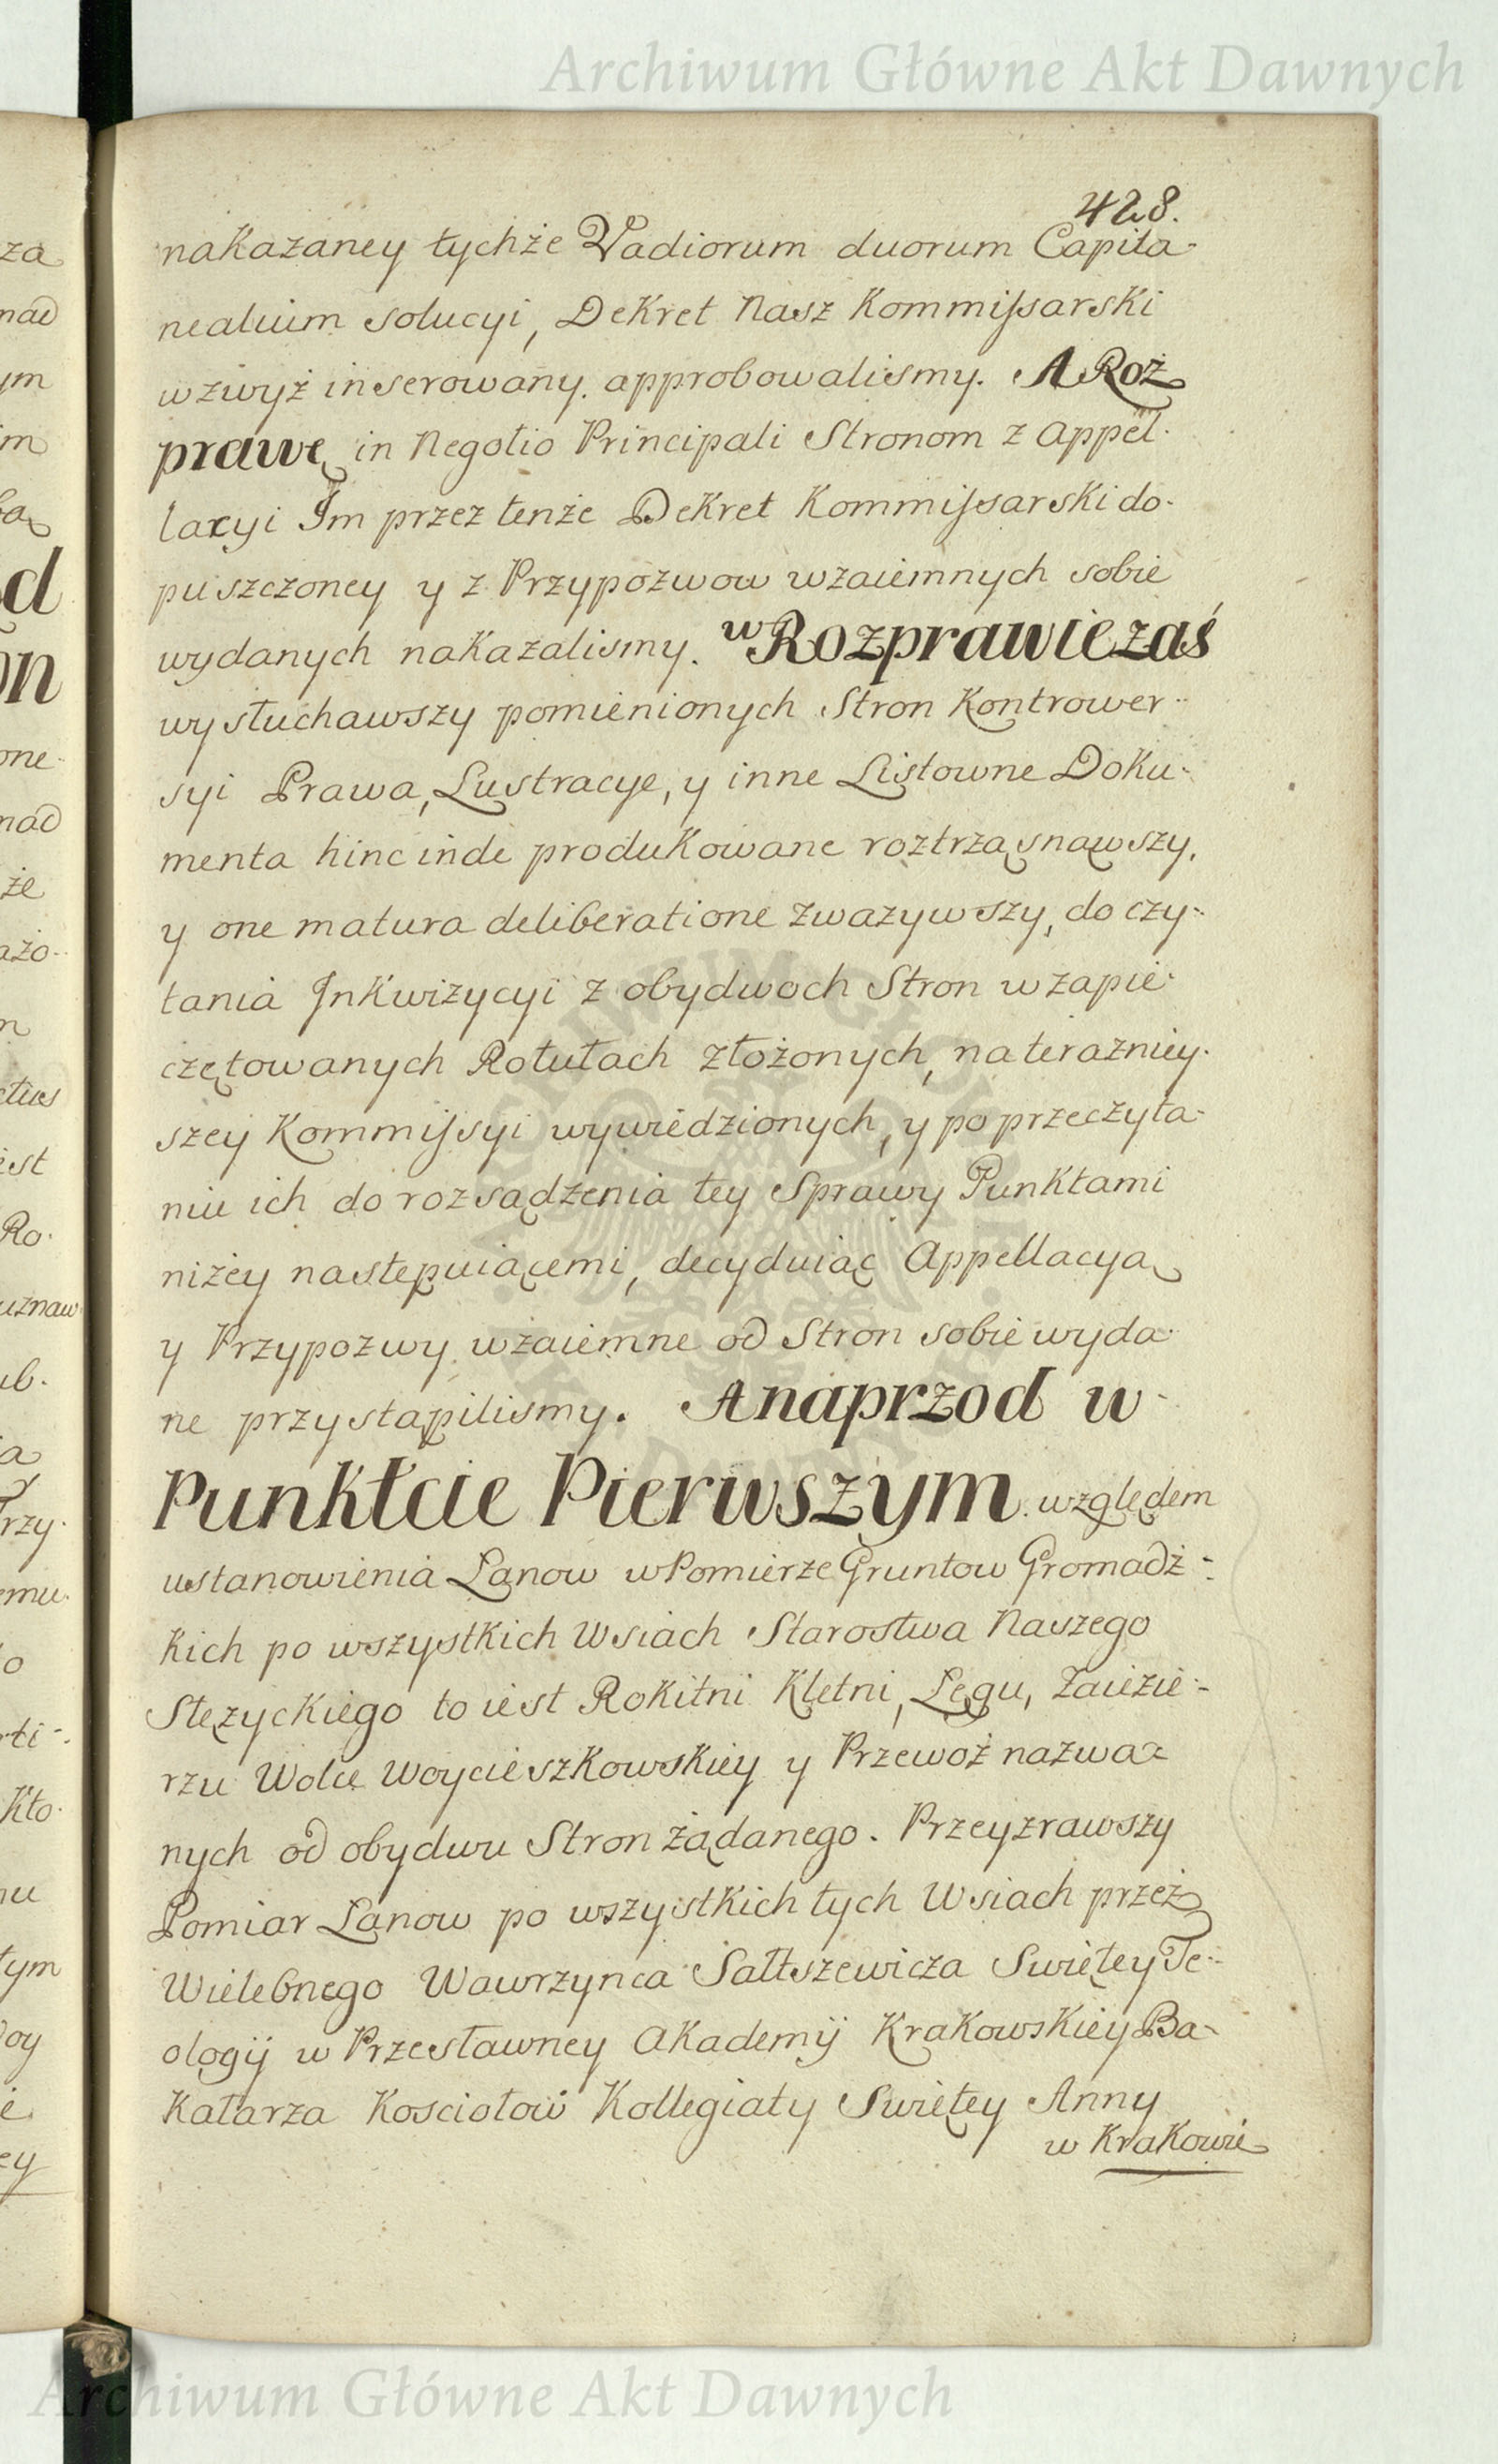 Archiwum Główne Akt Dawnych
428.
nakazaney tychże Vadiorum duorum Capita-
nealium solucyi, Dekret Nasz Kommissarski
wzwyż inserowany approbowalismy. A Roz
prawę in Negotio Principali Stronom z Appel-
lacyi Im przez tenże Dekret Kommissarski do-
puszczoney y z Przypozwow wzaiemnych sobie
wydanych nakazalismy. w Rozprawie zaś
wysłuchawszy pomienionych Stron Kontrower-
syi Prawa, Lustracye, y inne Listowne Doku-
menta hinc inde produkowane roztrząsnąwszy,
y one matura deliberatione zważywszy, do czy-
tania Inkwizycyi z obydwoch Stron w zapie-
czętowanych Rotułach złożonych, na terazniey-
szey Kommissyi wywiedzionych, y po przeczyta-
niu ich do rozsądzenia tey Sprawy Punktami
niżey następuiącemi, decyduiąc Appellacyą
y Przypozwy wzaiemne od Stron sobie wyda-
ne przystąpilismy. A naprzod w
Punktcie Pierwszym względem
ustanowienia Łanow w Pomierze Gruntow Gromadz-
kich po wszystkich Wsiach Starostwa Naszego
Stężyckiego to iest Rokitni Kletni, Lęgu, Zaiezie-
rzu Wolce Woycieszkowskiey y Przewoz nazwa-
nych od obydwu Stron żądanego. Przeyzrawszy
Pomiar Łanow po wszystkich tych Wsiach przez
Wielebnego Wawrzynca Sałtszewicza Swiętey Te-
ologij w Przesławney Akademij Krakowskiey Ba-
kałarza Kosciołow Kollegiaty Swiętey Anny
w Krakowie
za
nad
ym
im
d
on
one-
nad
że
ażo-
n
ctus
iest
Ro-
uznaw
ub.
ia
rzy-
emu-
o
rti-
Kto-
nu
tym
oy
ie
ey
Archiwum Główne Akt Dawnych